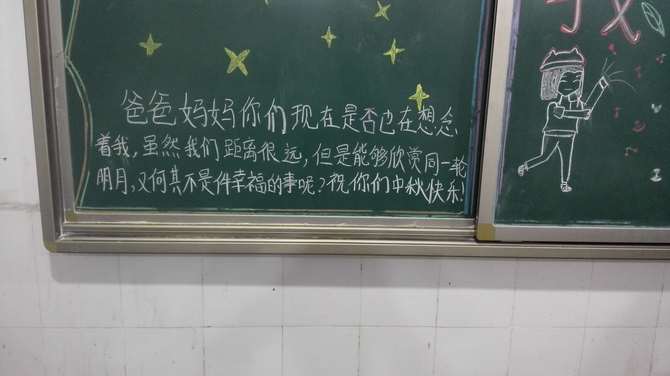 爸爸妈妈你们现在是否也在想念
着我,虽然我们距离很远,但是能够欣赏同一轮
明月,又何其不是件幸福的事呢?祝你们中秋快乐!